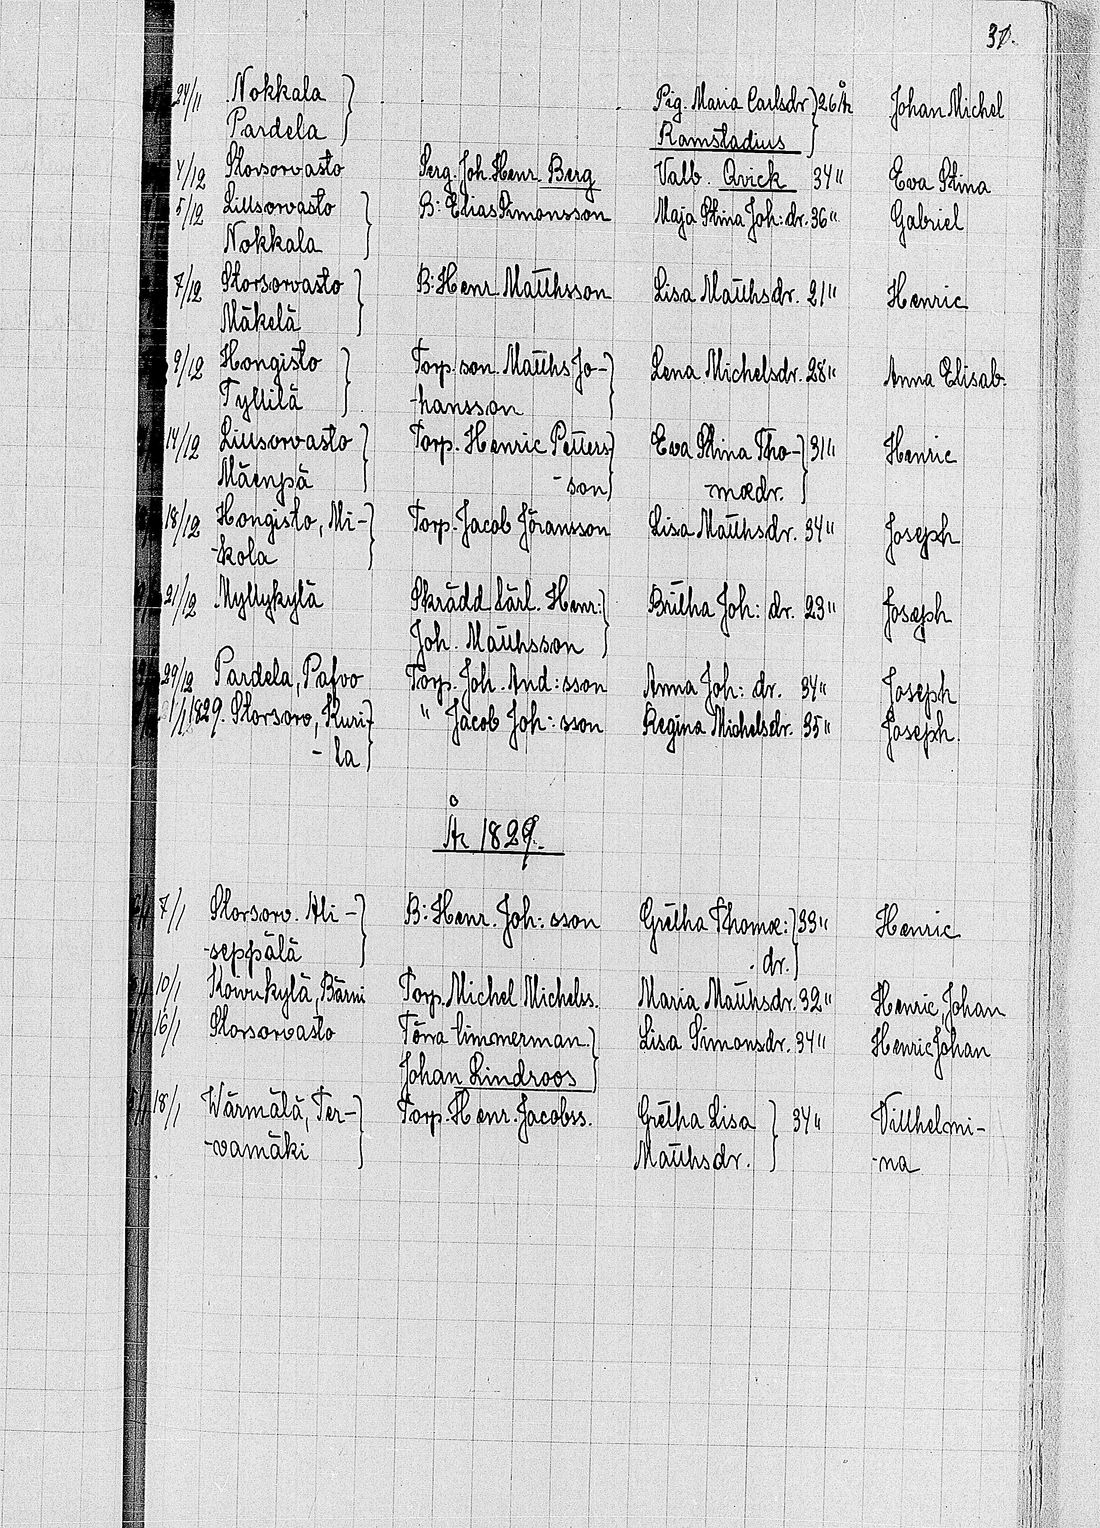 37.
24/11 Nokkala Pig. Maria Carlsdr 26 år Johan Michel
Pardela Ramstadius
4/12 Storsorvasto Serg. Joh. Henr. Berg Valb. Qvick 34" Eva Stina
5/12 Lillsorvasto B: Elias Simonsson Maja Stina Joh: dr. 36" Gabriel
Nokkala
7/12 Storsorvasto B: Henr. Matthsson Lisa Matthsdr. 21" Henric
Mäkelä
9/12 Hongisto Torp. son. Matths Jo- Lena Michelsdr. 28" Anna Elisab.
Tyllilä -hansson
14/12 Lillsorvasto Torp. Henric Petters Eva Stina Tho- 31" Henric
Mäenpä -son -mædr.
18/12 Hongisto, Mi- Torp. Jacob Jöransson Lisa Matthsdr. 34" Joseph
-kola
21/12 Myllykylä Skrädd. lärl. Henr: Britha Joh: dr. 23" Joseph
Joh. Matthsson
29/12 Pardela, Pafvo Torp. Joh. And: sson Anna Joh: dr. 34" Joseph
1/1 1829. Storsorv, Kuri- " Jacob Joh: sson Regina Michelsdr. 35" Joseph.
-la
År 1829.
7/1 Storsorv. Ali- B: Henr. Joh: sson Gretha Thomæ: 33" Henric
-seppälä dr.
10/1 Koivukylä, Bärni Torp. Michel Michelss. Maria Matthsdr. 32" Henric Johan
16/1 Storsorvasto Törra timmerman. Lisa Simonsdr. 34" Henric Johan
Johan Lindroos
18/1 Wärmälä, Ter- Torp. Henr. Jacobss. Gretha Lisa 34" Villhelmi-
-vamäki Matthsdr. -na